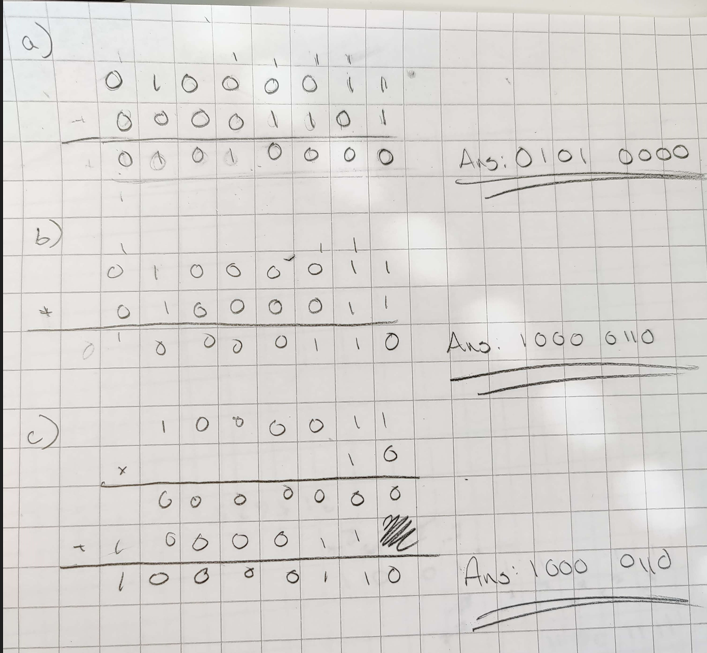 a)
1 1 1 1
0 1 0 0 0 0 1 1
+ 0 0 0 0 1 1 0 1
0 0 0 1 0 0 0 0 Ans: 0101 0000
b)
1 1 1
0 1 0 0 0 0 1 1
+ 0 1 0 0 0 0 1 1
0 1 0 0 0 0 1 1 0 Ans: 1000 0110
c)
1 0 0 0 0 1 1
x 1 0
0 0 0 0 0 0 0
+ 1 0 0 0 0 1 1
1 0 0 0 0 1 1 0 Ans: 1000 0110